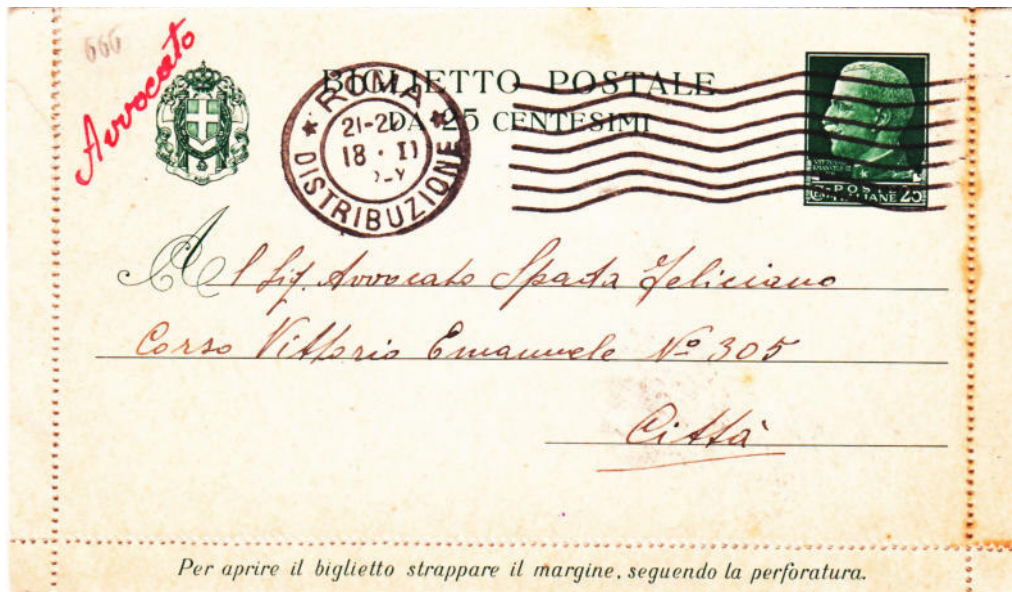 666
Avvocato
BIGLIETTO POSTALE
DA 25 CENTESIMI
ROMA
21-2
18 · II
DISTRIBUZIONE
POSTE
ITALIANE 25
Al Sig. Avvocato Spada Feliciano
Corso Vittorio Emanuele Nº 305
Città
Per aprire il biglietto strappare il margine, seguendo la perforatura.